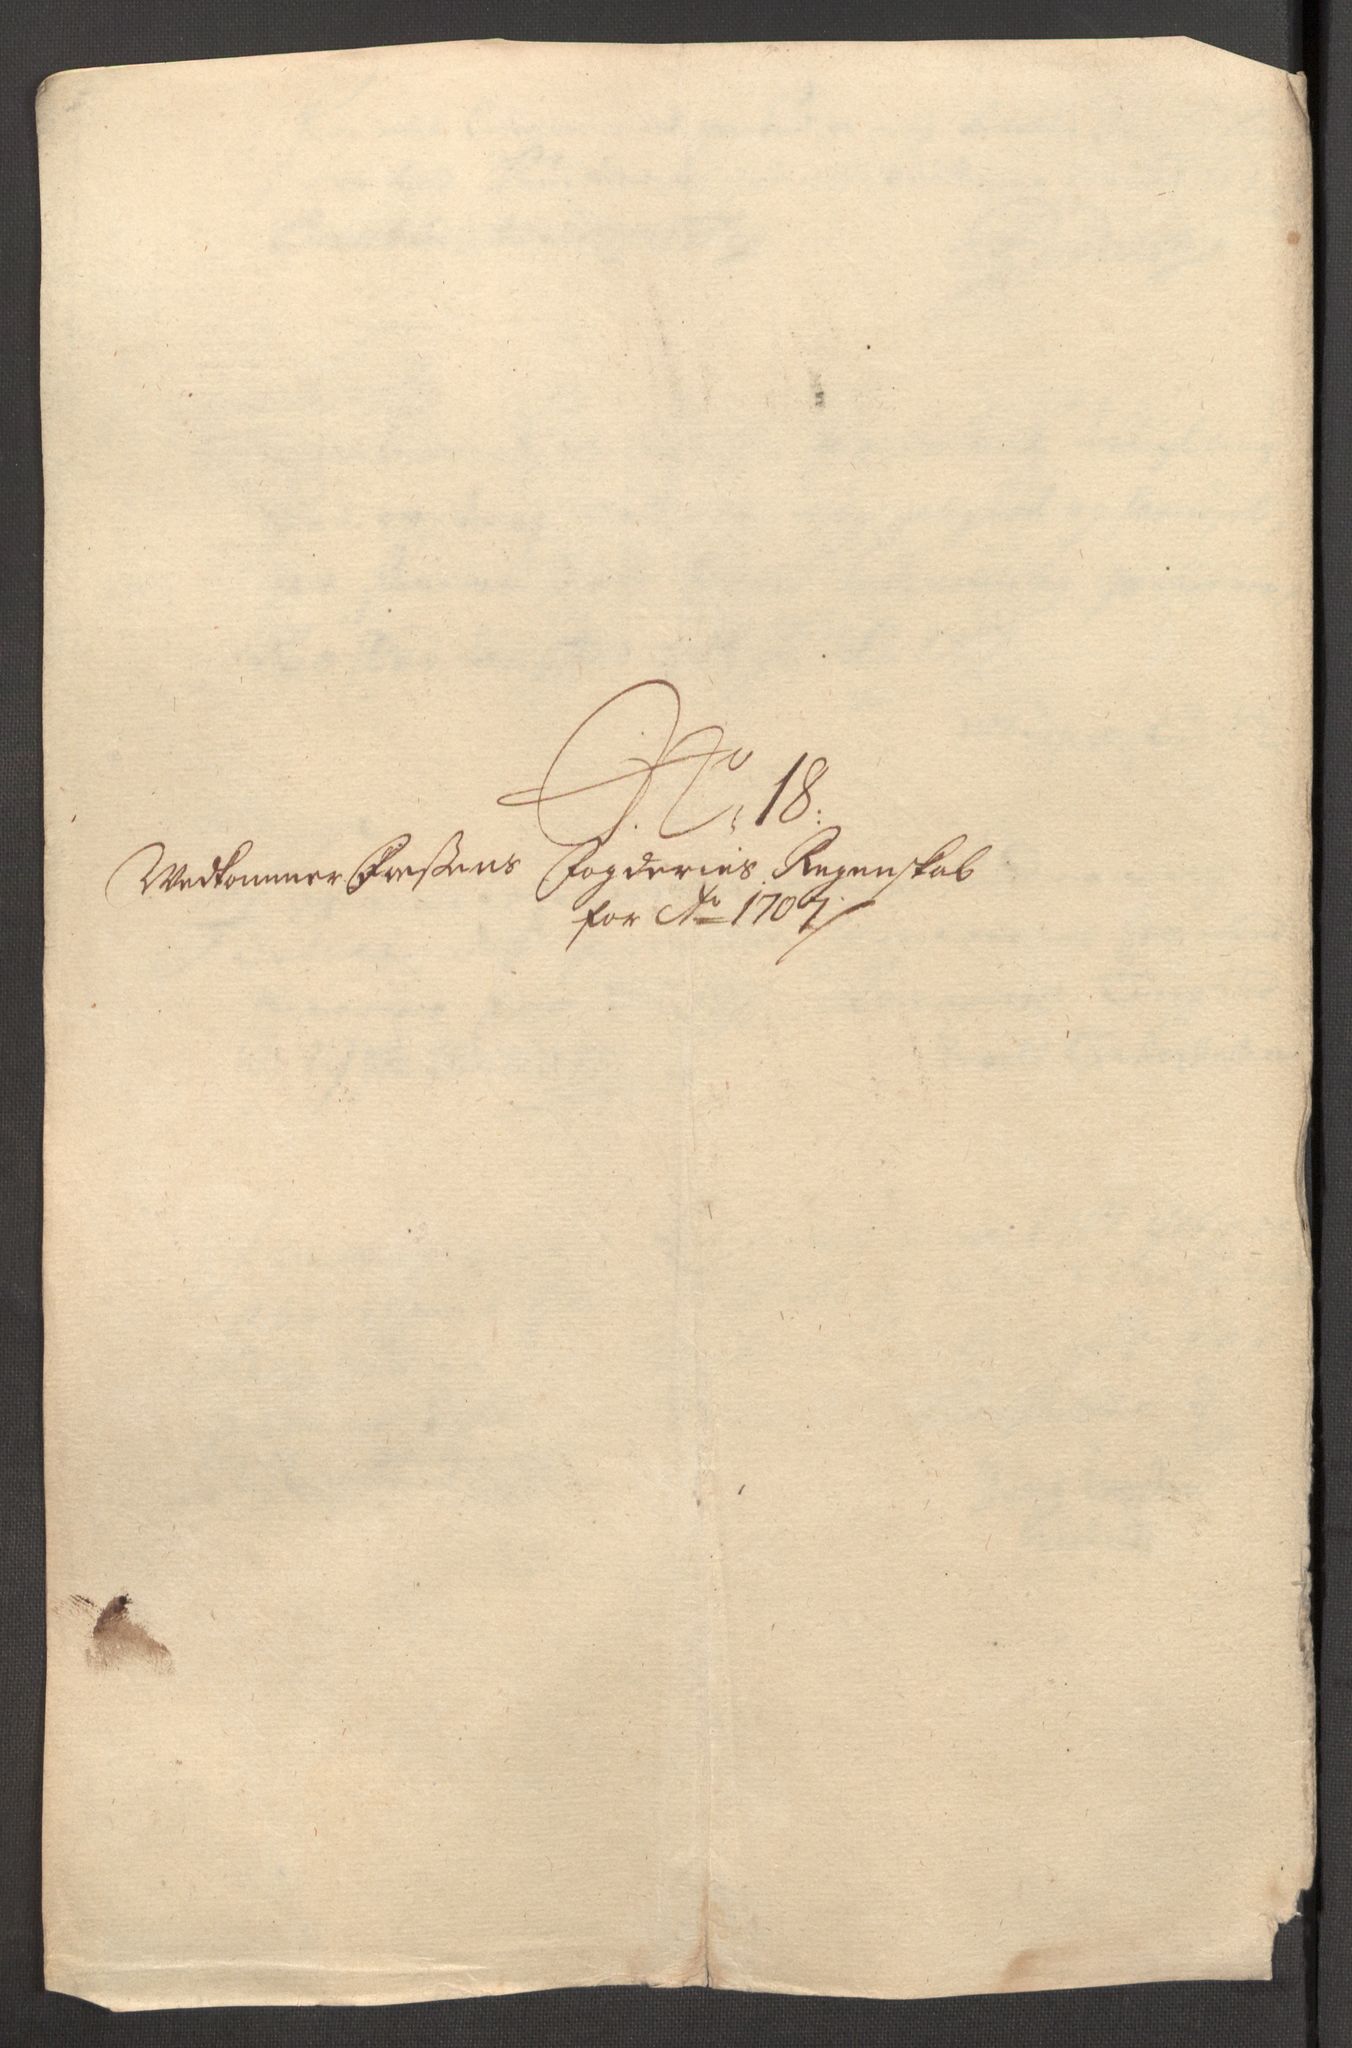 No. 18.
Vedkommer Fosens Fogderies Regenskab
for Ao 1707